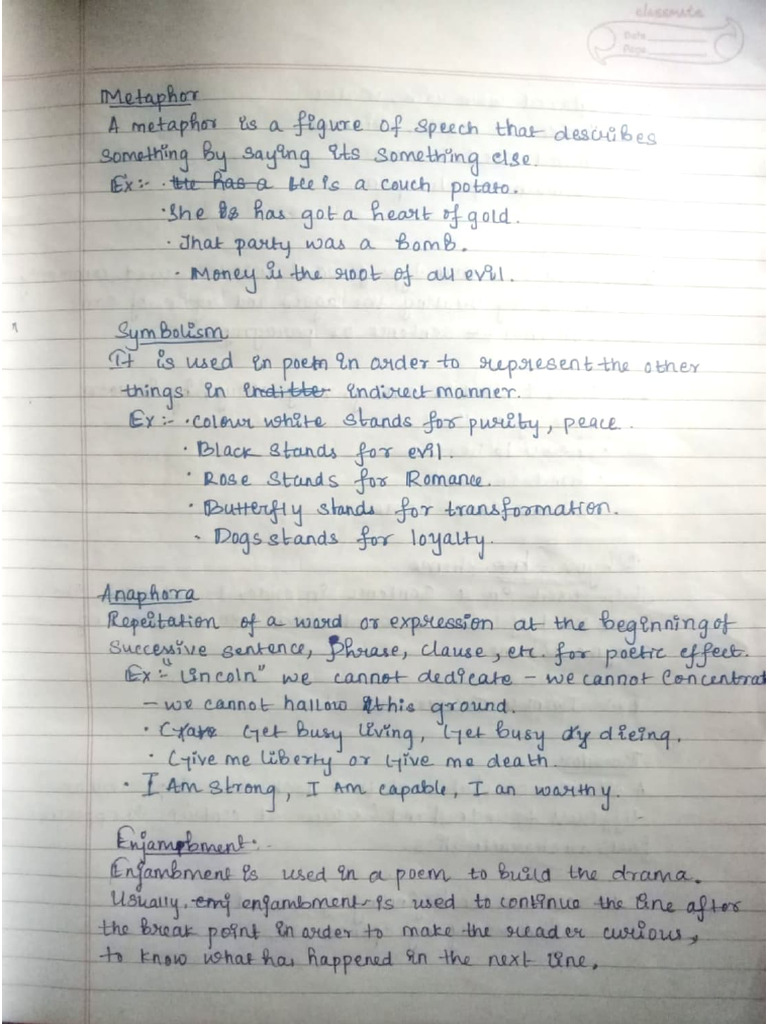 classmate
Date
Page
Metaphor
A metaphor is a figure of speech that describes
something by saying its something else.
Ex:- · He has a He is a couch potato.
· She is has got a heart of gold.
· That party was a bomb.
· Money is the root of all evil.
Symbolism
It is used in poem in order to represent the other
things in inditter indirect manner.
Ex:- · colour white stands for purity, peace.
· Black stands for evil.
· Rose stands for Romance.
· Butterfly stands for transformation.
· Dogs stands for loyalty.
Anaphora
Repeitation of a word or expression at the beginning of
successive sentence, phrase, clause, etc. for poetic effect.
Ex:- "Lincoln" we cannot dedicate – we cannot concentrat
– we cannot hallow this ground.
· Get busy living, Get busy dieing.
· Give me liberty or Give me death.
· I Am strong, I Am capable, I an worthy.
Enjambment:-
Enjambment is used in a poem to build the drama.
Usually, enj enjambment is used to continue the line after
the break point in order to make the reader curious,
to know what has happened in the next line,